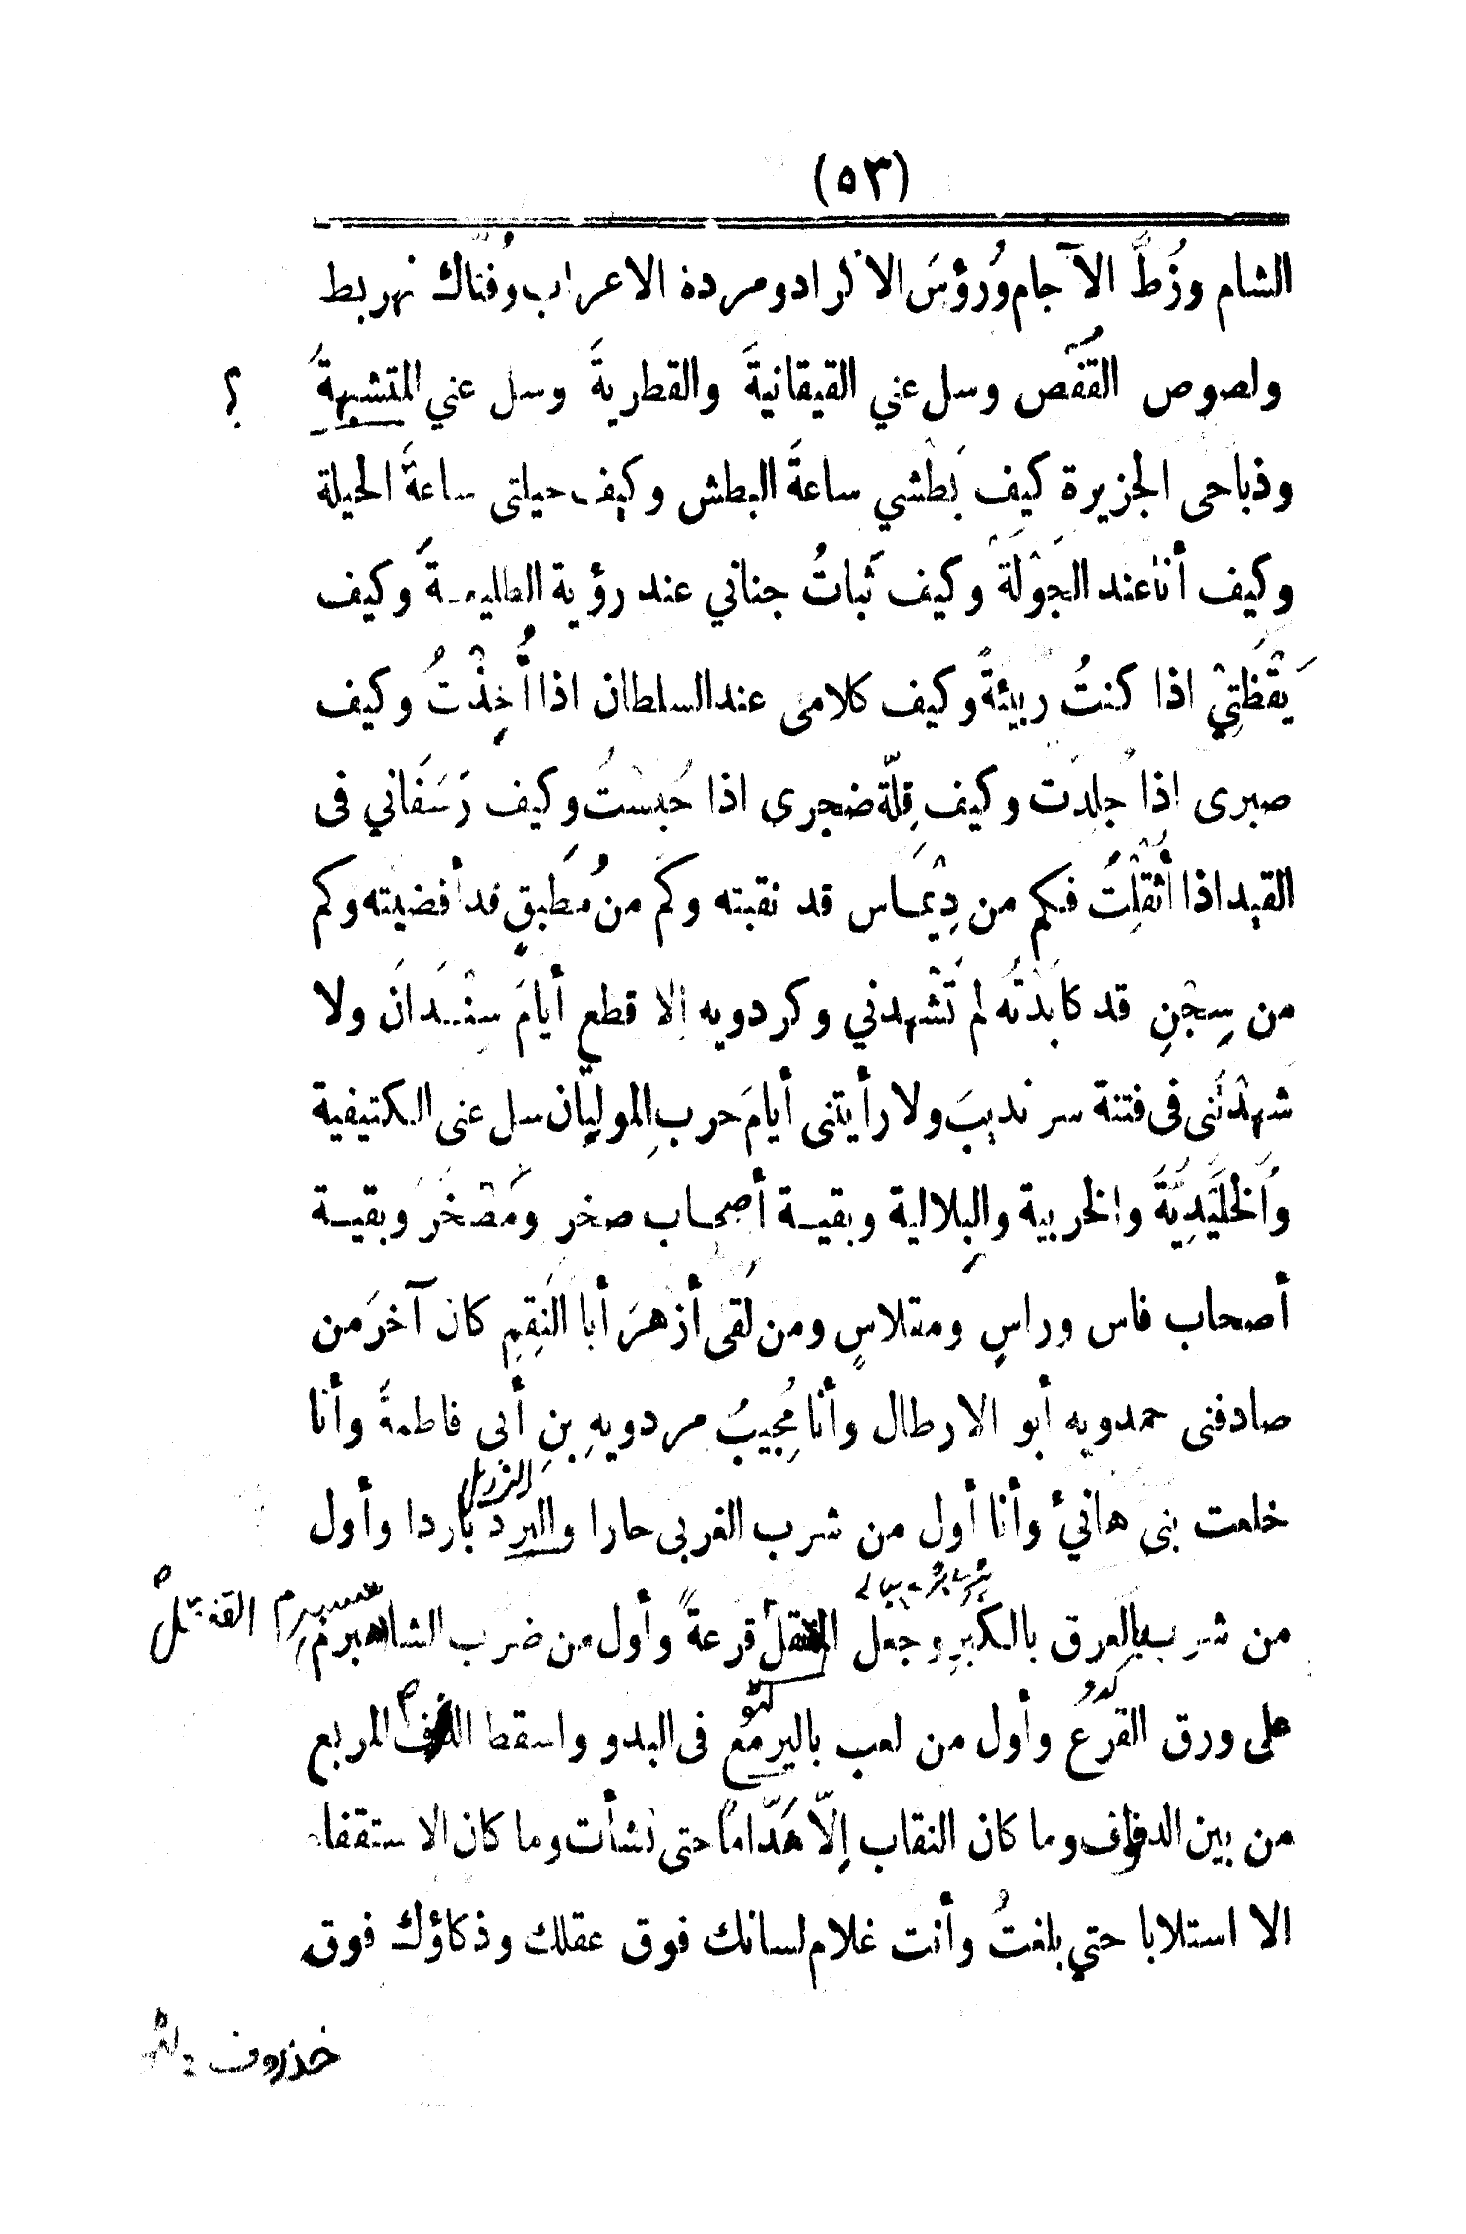 (٥٣)
الشام وزُطَّ الآجام ورُؤسَ الاكراد ومردة الاعراب وفُتّاك نهر بط
ولصوص القُفْص وسل عني القيقانيةَ والقطريةَ وسل عني المتشبهةَ ؟
وذباحى الجزيرة كيف بَطْشي ساعةَ البطش وكيف حيلتى ساعةَ الحيلة
وكيف أنا عند الجَوْلَة وكيف ثَباتُ جناني عند رؤية الطليعةَ وكيف
يَقْظَتِيْ اذا كنتُ ربيئةً وكيف كلامى عند السلطان اذا أُخِذْتُ وكيف
صبرى اذا جُلدَت وكيف قِلّة ضجرى اذا حُبسْتُ وكيف رَسَفَاني فى
القيد اذا أُثْقِلْتُ فكم من دِيْمَاس قد نقبته وكَم من مُطَبقٍ قد أفضيته وكم
من سِجْنٍ قد كابَدْتُه لم تَشْهدني وكردويه إلا قطع أيامَ سِنْدَانَ ولا
شهدْتَنى فى فتنة سرنديبَ ولا رأيتنى أيامَ حربِ المولِيَان سل عنى الكتيفية
وَالخُلَيْدِيَّةَ والخربية والبِلالية وبقية أصحاب صخر ومَصْخَر وبقية
أصحاب فاس وراسٍ ومتلاسٍ ومن لَقَى أزهرَ أبا النَقِمِ كان آخرَ من
صادفنى حمدويه أبو الارطال وأنا مُجِيبُ مردويهِ بنِ أبى فاطمةَ وأنا
خلعت بنى هانئ وأنا أول من شرب الغربى حارا والبرد باردا وأول
من شرب بالعرق بالكَبَرِ وجعل القنقل قرعةً وأول من ضرب الشاهسبرم
على ورق القَرْعُ وأول من لعب باليرمَعُ فى البدو واسقط الدف المربع
من بين الدفاف وما كان النقاب إلّا هَدَّاماً حتى نشأت وما كان الاستقفاء
الا استلابا حتي بلغتُ وأنت غلام لسانك فوق عقلك وذكاؤك فوق
خذروف